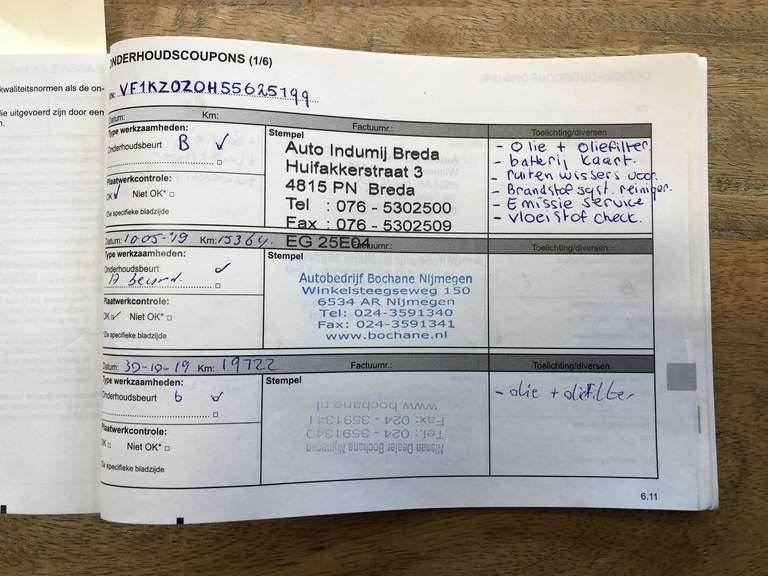 kwaliteitsnormen als de on-
lie uitgevoerd zijn door een
n.
ONDERHOUDSCOUPONS (1/6)
VF1KZ0Z0H55625199
Datum: Km: Factuurnr.: Toelichting/diversen
Type werkzaamheden:
Onderhoudsbeurt B ✓
Plaatwerkcontrole:
OK ✓ Niet OK* □
*Zie specifieke bladzijde
Stempel
Auto Indumij Breda
Huifakkerstraat 3
4815 PN Breda
Tel : 076 - 5302500
Fax : 076 - 5302509
EG 25E04
- olie + oliefilter
- batterij kaart.
- ruiten wissers voor.
- Brandstof syst. reiniger.
- Emissie service
- vloeistof check.
Datum: 10-05-'19 Km: 15364. Factuurnr.: Toelichting/diversen
Type werkzaamheden:
Onderhoudsbeurt ✓
A beurd.
Plaatwerkcontrole:
OK ✓ Niet OK* □
*Zie specifieke bladzijde
Stempel
Autobedrijf Bochane Nijmegen
Winkelsteegseweg 150
6534 AR Nijmegen
Tel: 024-3591340
Fax: 024-3591341
www.bochane.nl
Datum: 30-10-19 Km: 19722 Factuurnr.: Toelichting/diversen
Type werkzaamheden:
Onderhoudsbeurt b ✓
Plaatwerkcontrole:
OK □ Niet OK* □
*Zie specifieke bladzijde
Stempel
Nissan Dealer Bochane Nijmegen
Tel.: 024 - 3591340
Fax: 024 - 3591341
www.bochane.nl
- olie + oliefilter
6.11